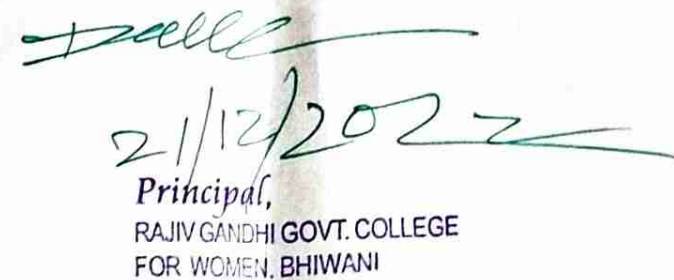 21/12/2022
Principal,
RAJIV GANDHI GOVT. COLLEGE
FOR WOMEN, BHIWANI